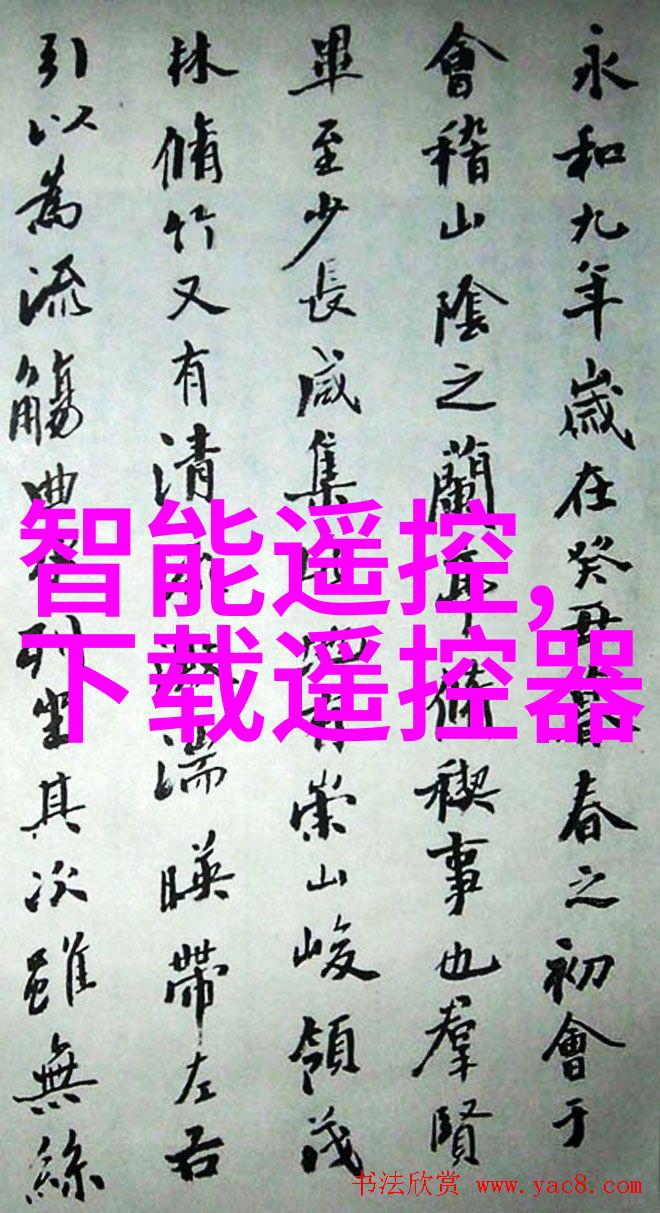 永和九年歲在癸丑春之初會于
會稽山陰之蘭亭脩稧事也羣賢
畢至少長咸集有崇山峻領茂
林脩竹又有清湍暎帶左右
引以為流觴曲列坐其次雖無絲
智能遥控,
下载遥控器
书法欣赏 www.yac8.com